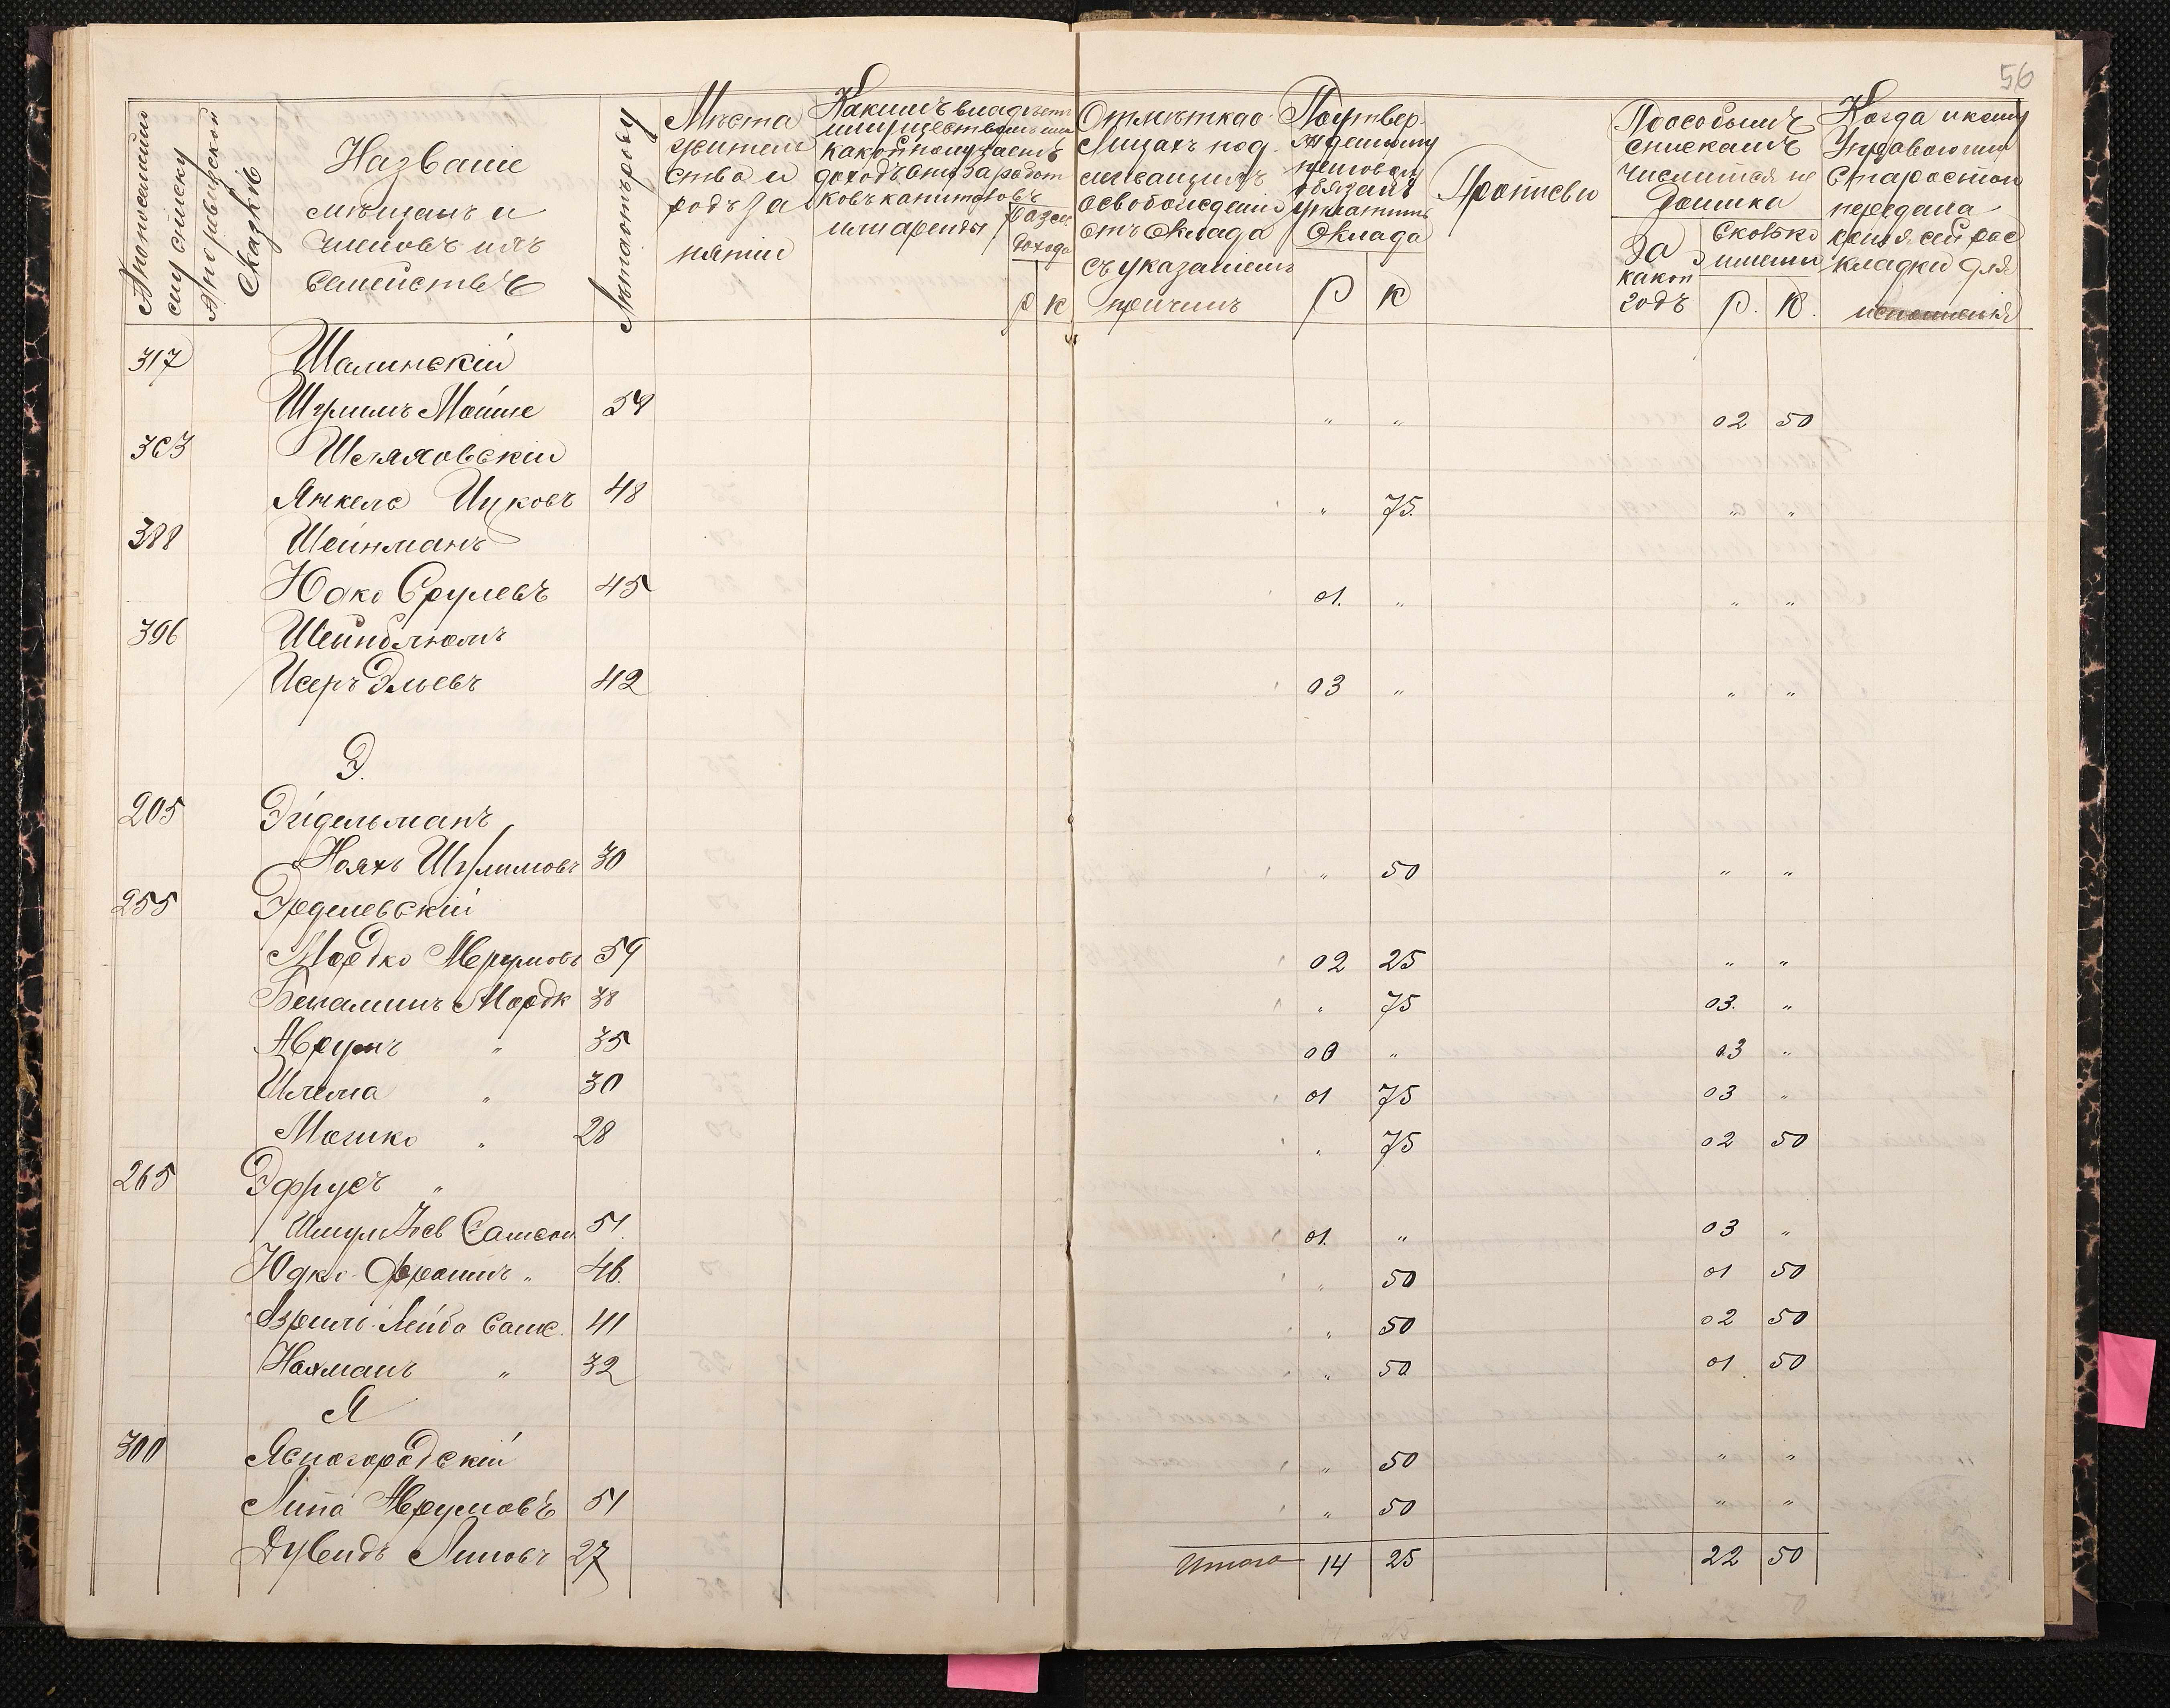 56
№ по посемейному
списку
№ по ревизской
сказкѣ
Названіе
мѣщанъ и
членовъ ихъ
семействъ
Лѣта отъ роду
Мѣста
житель
ства и
родъ за
нятій
Какимъ владѣетъ
имуществомъ или
доходъ
или аренды
дохода
р к
Отмѣтка о
лицахъ под
лежащихъ
освобожденію
отъ оклада
съ указаніемъ
причинъ
Потвер
жденному
обязанъ
уплатить
оклада
Р К
Противъ
По особымъ
спискамъ
числится не
доимка
За
какой
годъ
сколько
именно
Р. К.
Когда и кому
Управою или
Старостою
передана
копія сей рас
кладки для
исполненія
317 Шалинскій
Шулимъ Мошке 54 " " 02 50
363 Шеляховскій
Янкель Ицковъ 48 " 75. " "
388 Шейнманъ
Юдко Срулевъ 45 01. " " "
396 Шейнблюмъ
Исеръ Эльевъ 42 03 " " "
Э.
205 Эйдельманъ
Нояхъ Шулимовъ 30 " 50 " "
255
Мордко 59 02 25 " "
Беньаминъ Мордк 38 " 75 03. "
Аврумъ " 35 00 " 03 "
Шлема " 30 01 75 03 "
Мошко " 28 " 75 02 50
265 Эфрусъ "
Шмуль Іос Самсон 51. 01. " 03 "
Юдко Фроимъ " 46. " 50 01 50
Азриль Лейба Самс. 41 " 50 02 50
Нахманъ " 32 " 50 01 50
Я
300 Ясногородскій " 50 " "
Липа Аврумовъ 51 " 50 " "
Дувидъ Липовъ 27
Итого 14 25 22 50